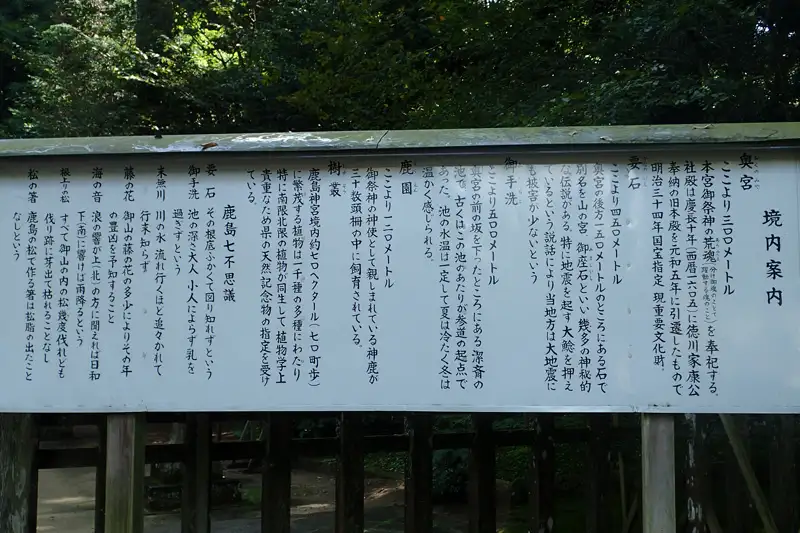 境内案内
奥宮
ここより三〇〇メートル
本宮御祭神の荒魂を奉祀する。
社殿は慶長十年（西暦一六〇五）に徳川家康公
奉納の旧本殿を元和五年に引遷したもので
明治三十四年国宝指定、現重要文化財。
要石
ここより四五〇メートル
奥宮の後方一五〇メートルのところにある石で
別名を山の宮、御座石といい幾多の神秘的
な伝説がある。特に地震を起す大鯰を押え
ているという説話により当地方は大地震に
も被害が少ないという
御手洗
ここより五〇〇メートル
奥宮の前の坂を下ったところにある潔斎の
池で、古くはこの池のあたりが参道の起点で
あった。池の水温は一定して夏は冷たく冬は
温かく感じられる。
鹿園
ここより一二〇メートル
御祭神の神使として親しまれている神鹿が
三十数頭柵の中に飼育されている。
樹叢
鹿島神宮境内約七〇ヘクタール（七〇町歩）
に繁茂する植物は一千種の多種にわたり
特に南限北限の植物が同生して植物学上
貴重なため県の天然記念物の指定を受け
ている。
鹿島七不思議
要石 その根底ふかくて図り知れずという
御手洗 池の深さ大人小人によらず乳を
過ぎずという
末無川 川の水流れ行くほど追々かれて
行末知らず
藤の花 御山の藤の花の多少によりその年
の豊凶を予知すること
海の音 浪の響が上（北）の方に聞えれば日和
下（南）に響けば雨降るという
根上り松 すべて御山の内の松幾度伐れども
伐り跡に芽出て枯れることなし
松の箸 鹿島の松で作る箸は松脂の出たこと
なしという